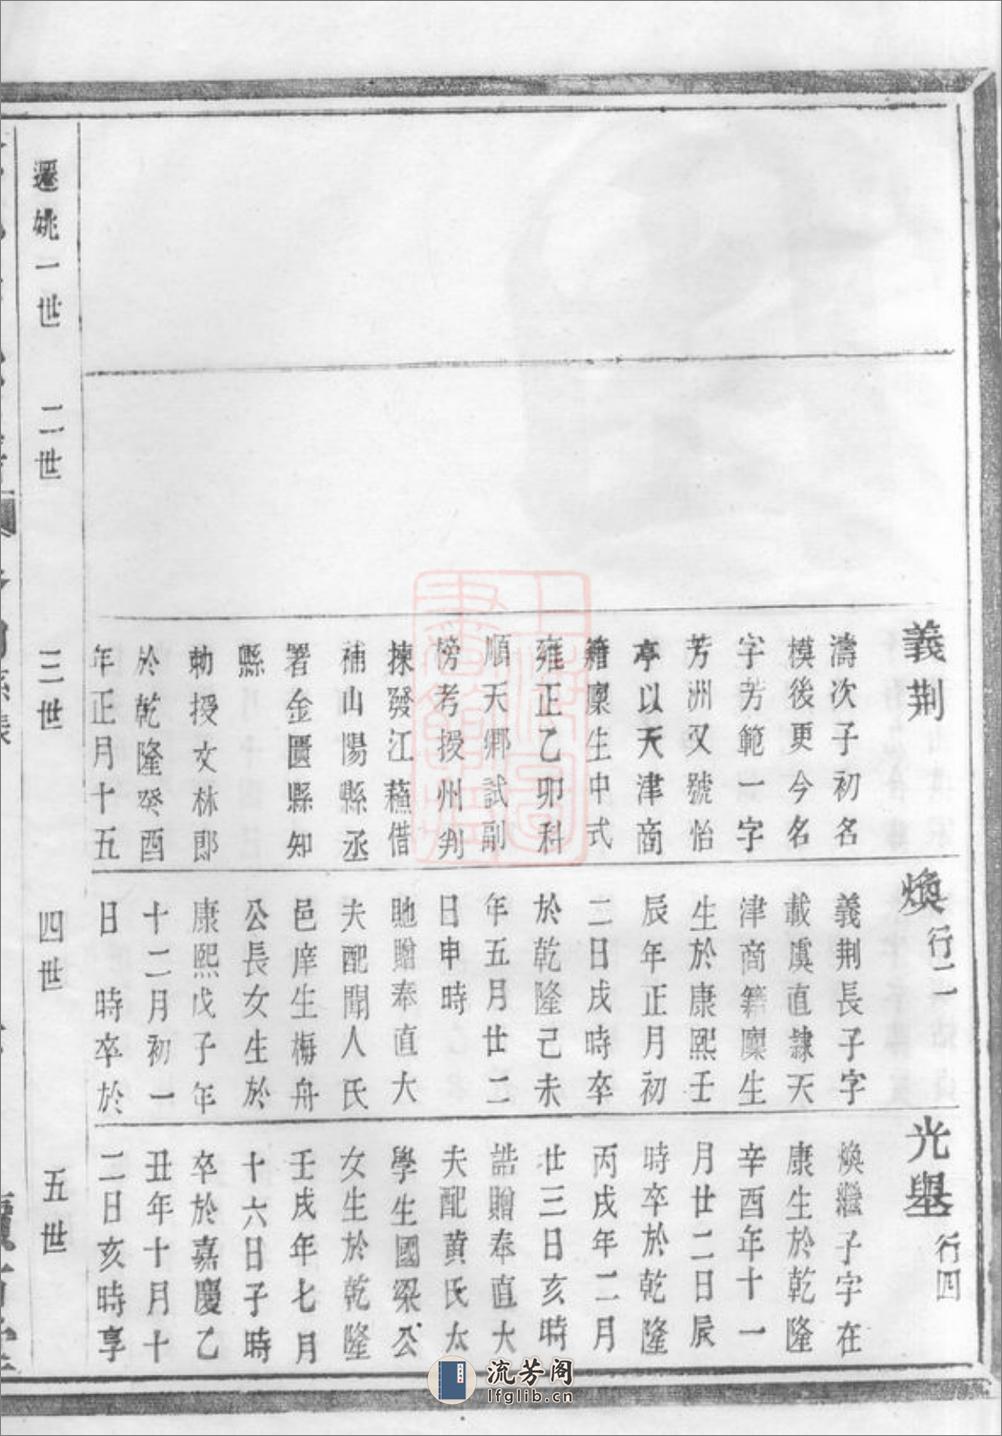 義荆
濤次子初名
模後更今名
字芳範一字
芳洲又號怡
亭以天津商
籍廩生中式
雍正乙卯科
順天鄉試副
榜考授州判
揀發江蘓借
補山陽縣丞
署金匱縣知
縣
勅授文林郎
於乾隆癸酉
年正月十五
煥 行二
義荆長子字
載虞直隸天
津商籍廩生
生於康熙壬
辰年正月初
二日戌時卒
於乾隆己未
年五月廿二
日申時
貤贈奉直大
夫配聞人氏
邑庠生梅舟
公長女生於
康熙戊子年
十二月初一
日 時卒於
光舉 行四
煥繼子字在
康生於乾隆
辛酉年十一
月廿二日辰
時卒於乾隆
丙戌年二月
廿三日亥時
誥贈奉直大
夫配黄氏太
學生國梁公
女生於乾隆
壬戌年七月
十六日子時
卒於嘉慶乙
丑年十月十
二日亥時享
遷姚一世 二世 三世 四世 五世
流芳阁
lfglib.cn